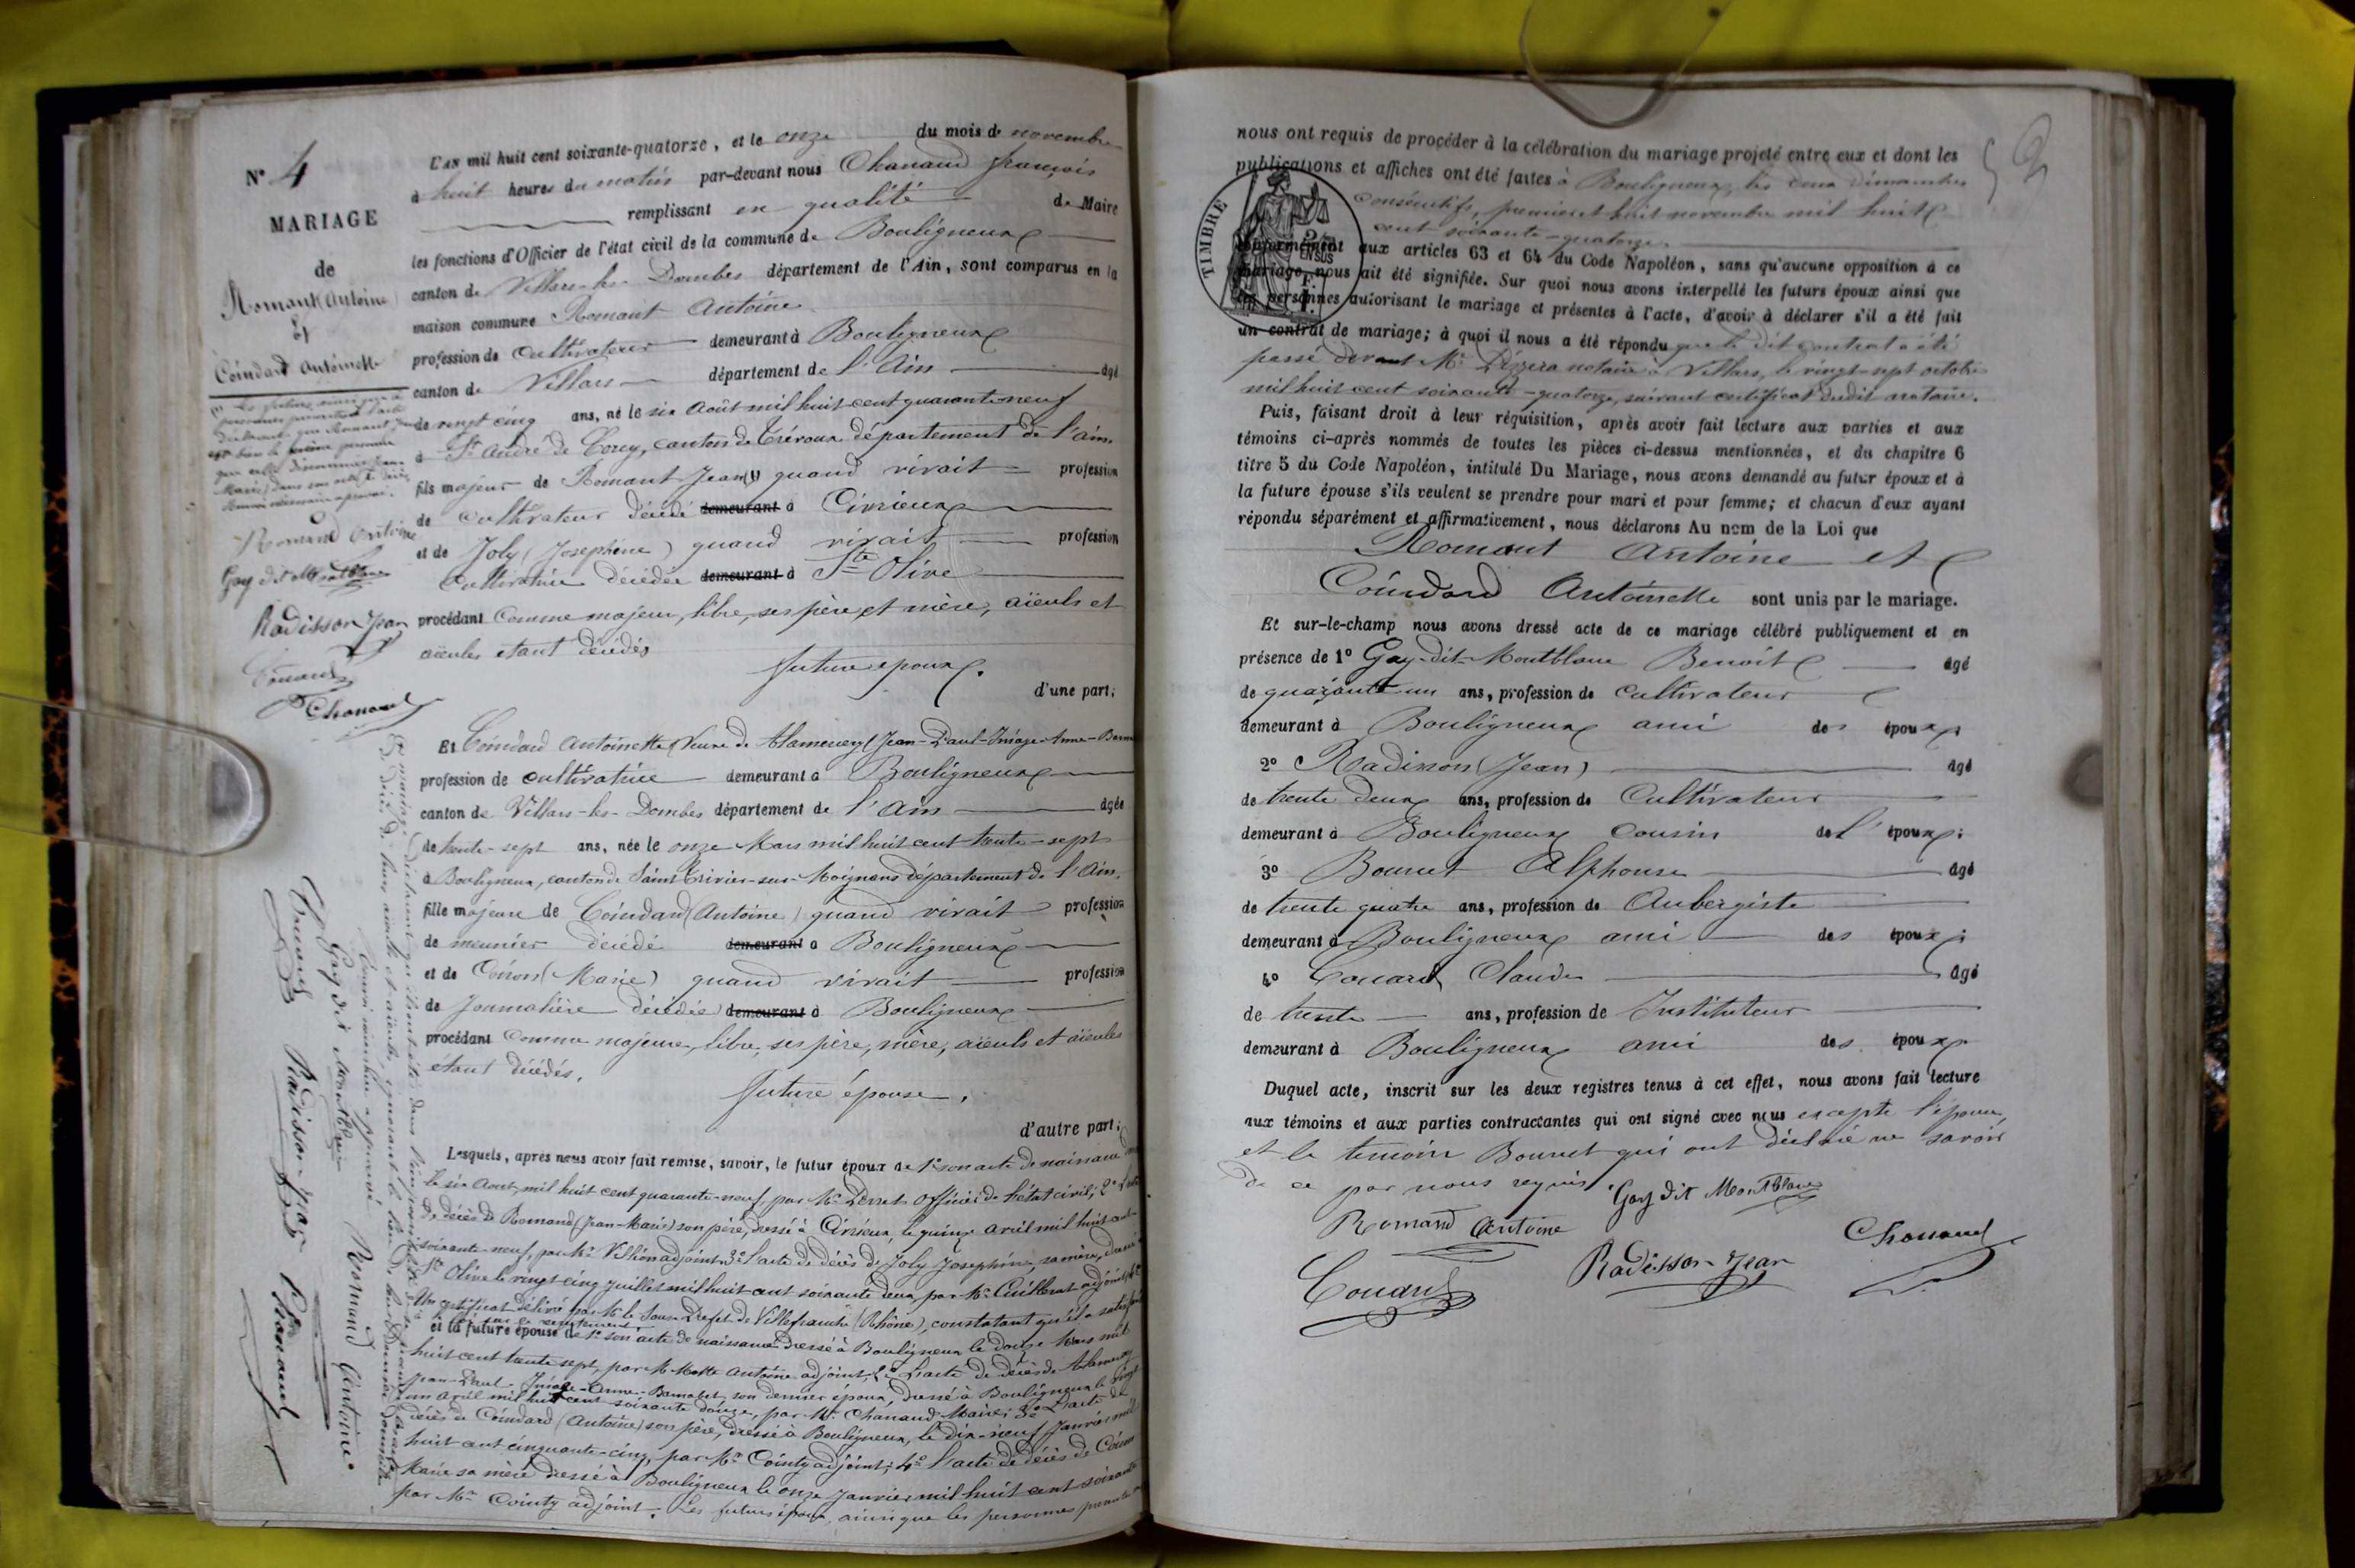 N° 4
MARIAGE
de
Romant (Antoine)
&
Coindard Antoinette
Romand Antoine
Gay dit Montblanc
Radisson Jean
Couard
Chanaud
L'AN mil huit cent soixante-quatorze, et le onze du mois de novembre
à huit heures du matin par-devant nous Chanaud François
remplissant en qualité de Maire
les fonctions d'Officier de l'état civil de la commune de Bouligneux
canton de Villars-les-Dombes département de l'Ain, sont comparus en la
maison commune Romant Antoine
profession de Cultivateur demeurant à Bouligneux
canton de Villars département de l'Ain âgé
de vingt cinq ans, né le six Août mil huit cent quarante-neuf
à St André de Corcy, canton de Trévoux département de l'Ain.
fils majeur de Romant Jean (1) quand vivait profession
de cultivateur décédé demeurant à Civrieux
et de Joly (Josephine) quand vivait profession
cultivatrice décédée demeurant à Ste Olive
procédant comme majeur, libre, ses père et mère, aïeuls et
aïeules étant décédés
futur epoux.
d'une part;
Et Coindard Antoinette (Veuve de Alamercery (Jean-Paul-Juiage-Anne-Barna
profession de cultivatrice demeurant à Bouligneux
canton de Villars-les-Dombes département de l'Ain âgée
de trente-sept ans, née le onze Mars mil huit cent trente-sept
à Bouligneux, canton de Saint Trivier-sur-Moignans département de l'Ain.
fille majeure de Coindard (Antoine) quand vivait profession
de meunier décédé demeurant à Bouligneux
et de Coiron (Marie) quand vivait profession
de Journalière décédée demeurant à Bouligneux
procédant comme majeure, libre, ses père, mère, aïeuls et aïeules
étant décédés.
future épouse.
d'autre part;
Lesquels, après nous avoir fait remise, savoir, le futur époux de 1° son acte de naissance
le six Aout mil huit cent quarante-neuf, par Mr Perret Officier de l'état civil; 2° l'acte
de décès de Romand (Jean-Marie) son père, dressé à Civrieux, le quinze avril mil huit cent
soixante-neuf, par Mr Villion adjoint; 3° l'acte de décès de Joly Josephine, sa mère, dressé à
Ste Olive le vingt cinq Juillet mil huit cent soixante deux par Mr Cuillerat adjoint; 4°
Un certificat délivré par Mr le Sous-Préfet de Villefranche (Rhône), constatant qu'il a satisfait
et la future épouse de 1° son acte de naissance dressé à Bouligneux le douze Mars mil
huit cent trente sept, par M. Motte Antoine adjoint; 2° L'acte de décès de Alamercery
Jean-Paul-Juiage-Anne-Barnabet, son dernier époux, dressé à Bouligneux le vingt
un avril mil huit cent soixante douze, par Mr Chanaud Maire; 3° L'acte de
décès de Coindard (Antoine) son père, dressé à Bouligneux, le dix-neuf Janvier mil
huit cent cinquante-cinq, par Mr Cointy adjoint; 4° l'acte de décès de Coiron
Marie sa mère dressé à Bouligneux le onze Janvier mil huit cent soixante
par Mr Cointy adjoint. Les futurs époux, ainsi que les personnes présentes
Romand Antoine.
Gay dit Montblanc
Couard Radisson Jean Chanaud
nous ont requis de procéder à la célébration du mariage projeté entre eux et dont les
publications et affiches ont été faites à Bouligneux, les deux dimanches
consécutifs, premier et huit novembre mil huit
cent soixante-quatorze.
TIMBRE
EN SUS
conformément aux articles 63 et 64 du Code Napoléon, sans qu'aucune opposition à ce
mariage nous ait été signifiée. Sur quoi nous avons interpellé les futurs époux ainsi que
les personnes autorisant le mariage et présentes à l'acte, d'avoir à déclarer s'il a été fait
un contrat de mariage; à quoi il nous a été répondu que le dit contrat a été
passé devant Me notaire à Villars, le vingt-sept octobre
mil huit cent soixante-quatorze, suivant certificat dudit notaire.
Puis, faisant droit à leur réquisition, après avoir fait lecture aux parties et aux
témoins ci-après nommés de toutes les pièces ci-dessus mentionnées, et du chapitre 6
titre 5 du Code Napoléon, intitulé Du Mariage, nous avons demandé au futur époux et à
la future épouse s'ils veulent se prendre pour mari et pour femme; et chacun d'eux ayant
répondu séparément et affirmativement, nous déclarons Au nom de la Loi que
Romant Antoine et
Coindard Antoinette sont unis par le mariage.
Et sur-le-champ nous avons dressé acte de ce mariage célébré publiquement et en
présence de 1° Gay-dit-Montblanc Benoit âgé
de quarante un ans, profession de cultivateur
demeurant à Bouligneux ami des époux;
2° Radisson (Jean) âgé
de trente deux ans, profession de Cultivateur
demeurant à Bouligneux cousin de l'époux;
3° Bounet Alphonse âgé
de trente quatre ans, profession de Aubergiste
demeurant à Bouligneux ami des époux;
4° Couard Claude âgé
de trente ans, profession de Instituteur
demeurant à Bouligneux ami des époux.
Duquel acte, inscrit sur les deux registres tenus à cet effet, nous avons fait lecture
aux témoins et aux parties contractantes qui ont signé avec nous excepté l'épouse,
et le temoin Bounet qui ont déclaré ne savoir
de ce par nous requis.
Gay dit Montblanc
Romand Antoine
Chanaud
Radisson Jean
Couard